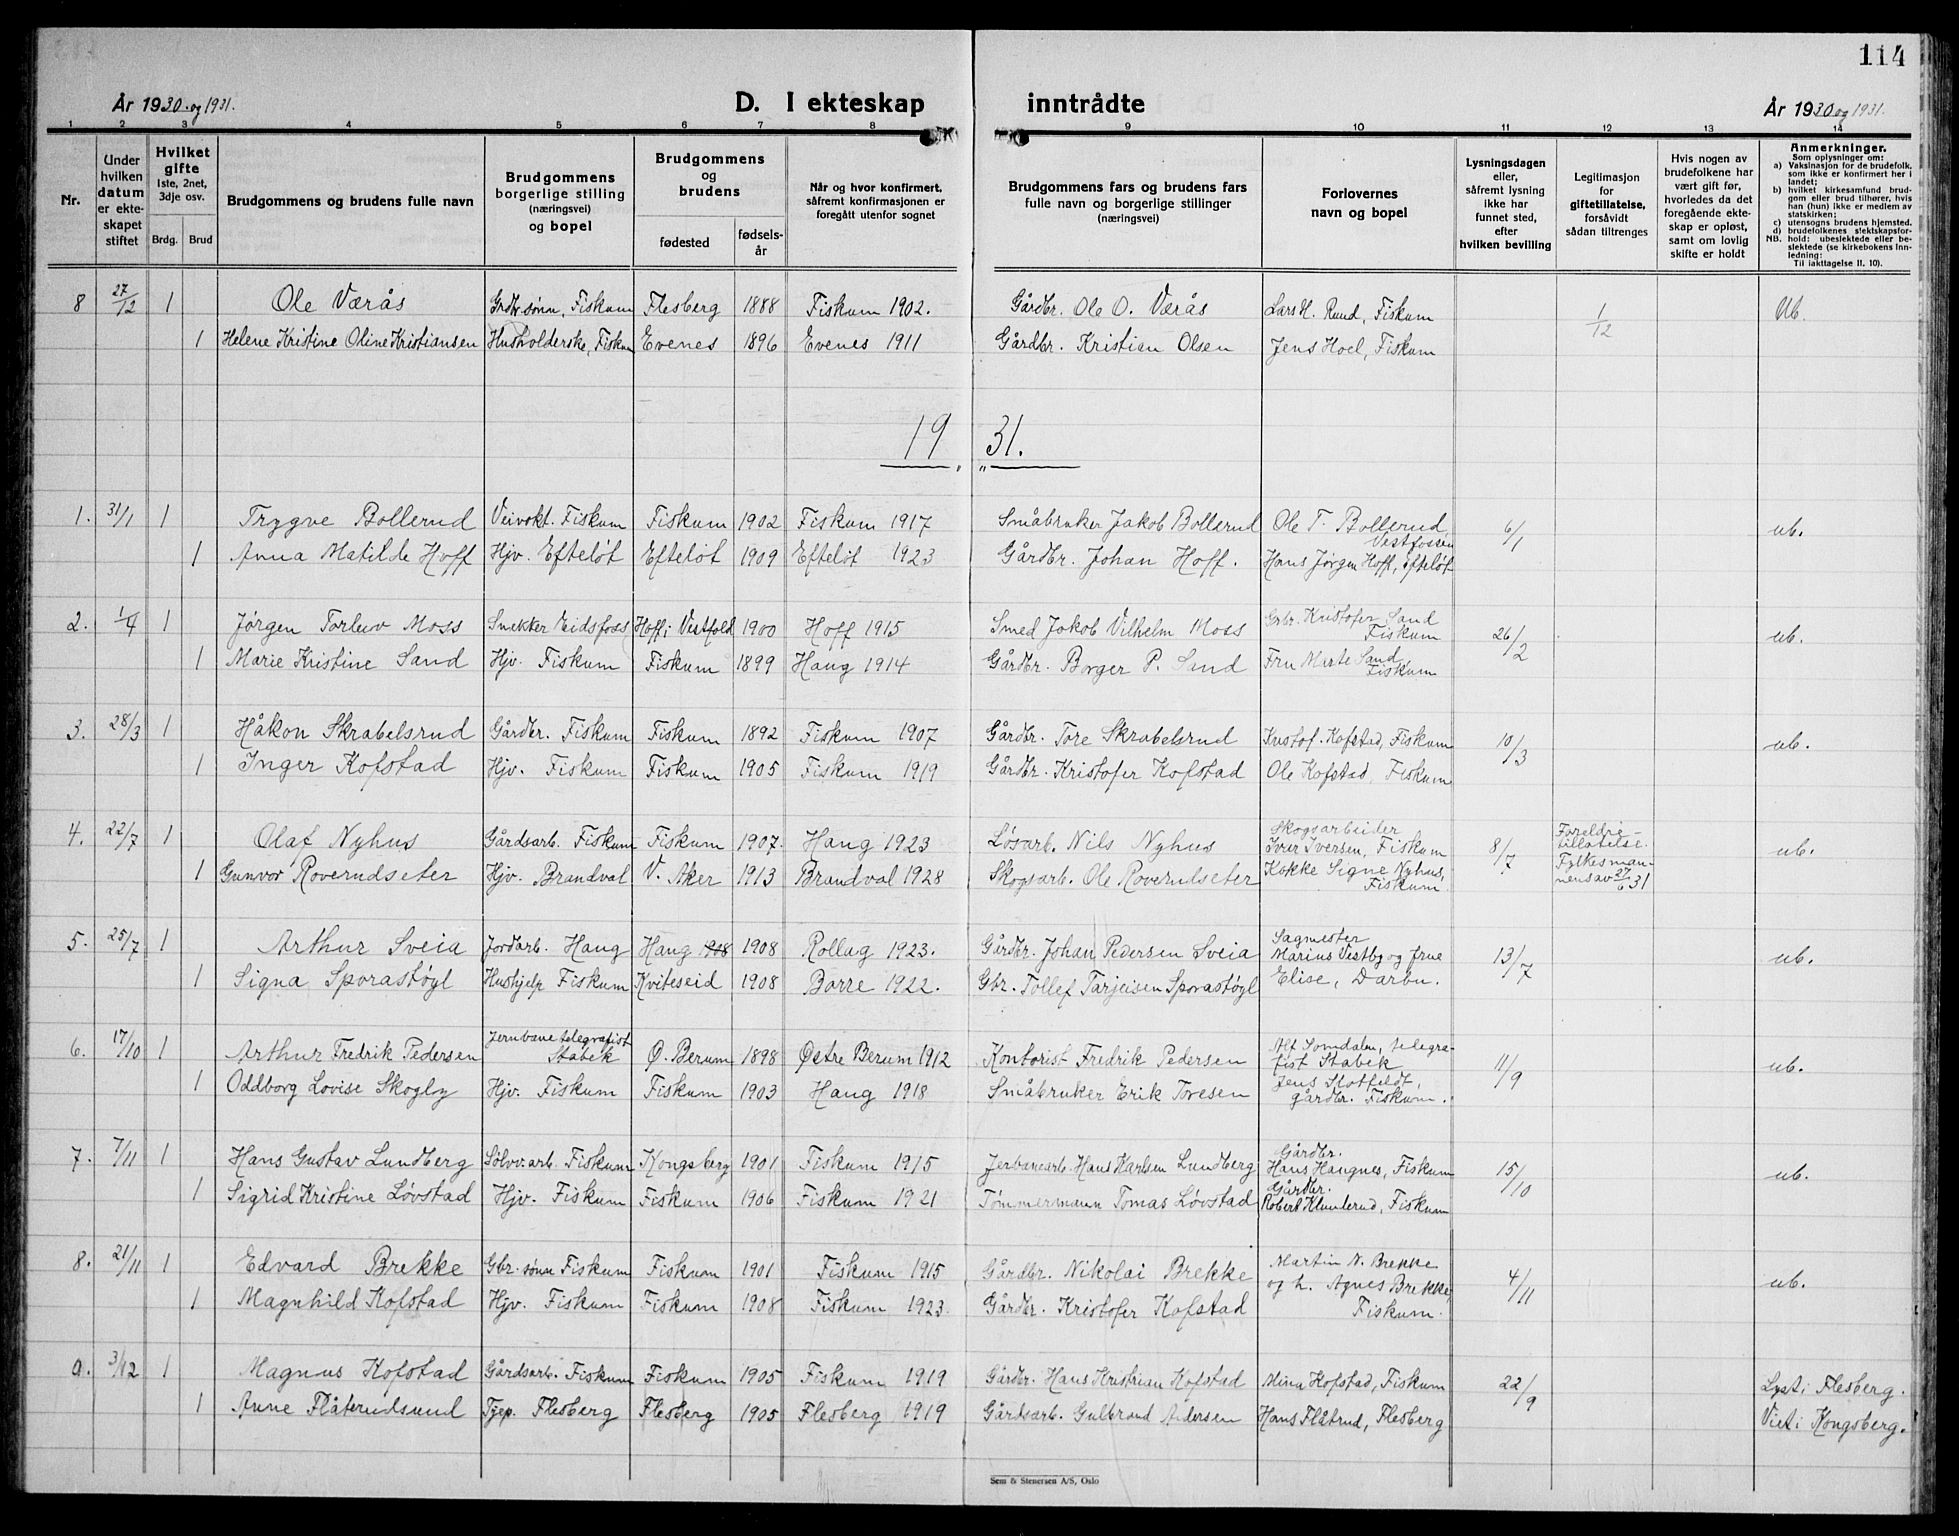 114
År 1930 og 1931.
D. I ekteskap inntrådte
År 1930 og 1931.
1 2 3 4 5 6 7 8 9 10 11 12 13 14
Nr.
Under hvilken datum er ekteskapet stiftet
Hvilket gifte
1ste, 2net, 3dje osv.
Brdg. Brud
Brudgommens og brudens fulle navn
Brudgommens borgerlige stilling (næringsvei) og bopel
Brudgommens og brudens
fødested
fødselsår
Når og hvor konfirmert, såfremt konfirmasjonen er foregått utenfor sognet
Brudgommens fars og brudens fars fulle navn og borgerlige stillinger (næringsvei)
Forlovernes navn og bopel
Lysningsdagen eller, såfremt lysning ikke har funnet sted, efter hvilken bevilling
Legitimasjon for giftetillatelse, forsåvidt sådan tiltrenges
Hvis nogen av brudefolkene har vært gift før, hvorledes da det foregående ekteskap er opløst, samt om lovlig skifte er holdt
Anmerkninger.
Som oplysninger om:
a) Vaksinasjon for de brudefolk, som ikke er konfirmert her i landet;
b) hvilket kirkesamfund brudgom eller brud tilhører, hvis han (hun) ikke er medlem av statskirken;
c) utensogns brudens hjemsted.
d) brudefolkenes slektskapsforhold: ubeslektede eller beslektede (se kirkebokens Innledning:
NB. Til iakttagelse II. 10).
8 27/12 1 Ole Værås Grdbr.sønn, Fiskum Flesberg 1888 Fiskum 1902. Gårdbr. Ole O. Værås Lars H. Ruud, Fiskum 1/12 Ub.
1 Helene Kristine Oline Kristiansen Husholderske, Fiskum Evenes 1896 Evenes 1911 Gårdbr. Kristian Olsen Jens Hoel, Fiskum
19 31.
1. 31/1 1 Trygve Bollerud Veivokt. Fiskum Fiskum 1902 Fiskum 1917 Småbruker Jakob Bollerud Ole T. Bollerud Vestfossen 6/1 ub.
1 Anna Matilde Hoff Hjv. Efteløt Efteløt 1909 Efteløt 1923 Gårdbr. Johan Hoff. Hans Jørgen Hoff, Efteløt
2. 1/4 1 Jørgen Torleiv Moss Snekker Eidsfoss Hoff i Vestfold 1900 Hoff 1915 Smed Jakob Vilhelm Moss Grbr. Kristofer Sand Fiskum 26/2 ub.
1 Marie Kristine Sand Hjv. Fiskum Fiskum 1899 Haug 1914 Gårdbr. Borger P. Sand Fru Marte Sand, Fiskum
3. 28/3 1 Håkon Skrabelsrud Gårdbr. Fiskum Fiskum 1892 Fiskum 1907 Gårdbr. Tore Skrabelsrud Kristof. Kofstad, Fiskum 10/3 ub.
1 Inger Kofstad Hjv. Fiskum Fiskum 1905 Fiskum 1919 Gårdbr. Kristofer Kofstad Ole Kofstad, Fiskum
4. 22/7 1 Olaf Nyhus Gårdsarb. Fiskum Fiskum 1907. Haug 1923 Løsarb. Nils Nyhus Skogsarbeider Iver Iversen, Fiskum 8/7 Foreldretillatelse. ub.
1 Gunvor Roverudseter Hjv. Brandval V. Aker 1913 Brandval 1928 Skogsarb. Ole Roverudseter Kokke Signe Nyhus, Fiskum. Fylkesmannens av 27/6 31
5. 25/7 1 Arthur Sveia Jordarb. Haug Haug 1908 1908 Rollag 1923. Gårdbr. Johan Pedersen Sveia Sagmester Marius Vestby og frue 13/7 ub.
1 Signa Sporastøyl Hushjelp Fiskum Kviteseid 1908 Borre 1922. Gbr. Tollef Tarjeisen Sporastøyl Elise, Darbu.
6. 17/10 1 Arthur Fredrik Pedersen Jernbanetelegrafist Stabek Ø. Berum 1898 Østre Berum 1912 Kontorist Fredrik Pedersen Alf Somdalen, telegrafist Stabek 11/9 ub.
1 Oddborg Lovise Skogly Hjv. Fiskum Fiskum 1903 Haug 1918 Småbruker Erik Toresen Jens Stotfeldt, gårdbr. Fiskum.
7. 7/11 1 Hans Gustav Lundberg Sølvv.arb. Fiskum Kongsberg 1901 Fiskum 1915 Jerbanearb. Hans Karlsen Lundberg Gårdbr. Hans Haugnes, Fiskum 15/10 ub.
1 Sigrid Kristine Løvstad Hjv. Fiskum Fiskum 1906 Fiskum 1921 Tømmermann Tomas Løvstad Gårdbr. Robert Klunderud, Fiskum
8. 21/11 1 Edvard Brekke Gbr. sønn Fiskum Fiskum 1901 Fiskum 1915 Gårdbr. Nikolai Brekke Martin N. Brekke 4/11 ub.
1 Magnhild Kofstad Hjv. Fiskum Fiskum 1908 Fiskum 1923. Gårdbr. Kristofer Kofstad og h. Agnes Brekke, Fiskum.
9. 3/12 1 Magnus Kofstad Gårdsarb. Fiskum Fiskum 1905 Fiskum 1919 Gårdbr. Hans Kristian Kofstad Mina Kofstad, Fiskum 22/9 Lyst i Flesberg.
1 Anne Flåterudsund Tjep. Flesberg Flesberg 1905 Flesberg 1919 Gårdsarb. Gulbrand Andersen Hans Flåtrud, Flesberg Viet i Kongsberg.
Sem & Stenersen A/S, Oslo